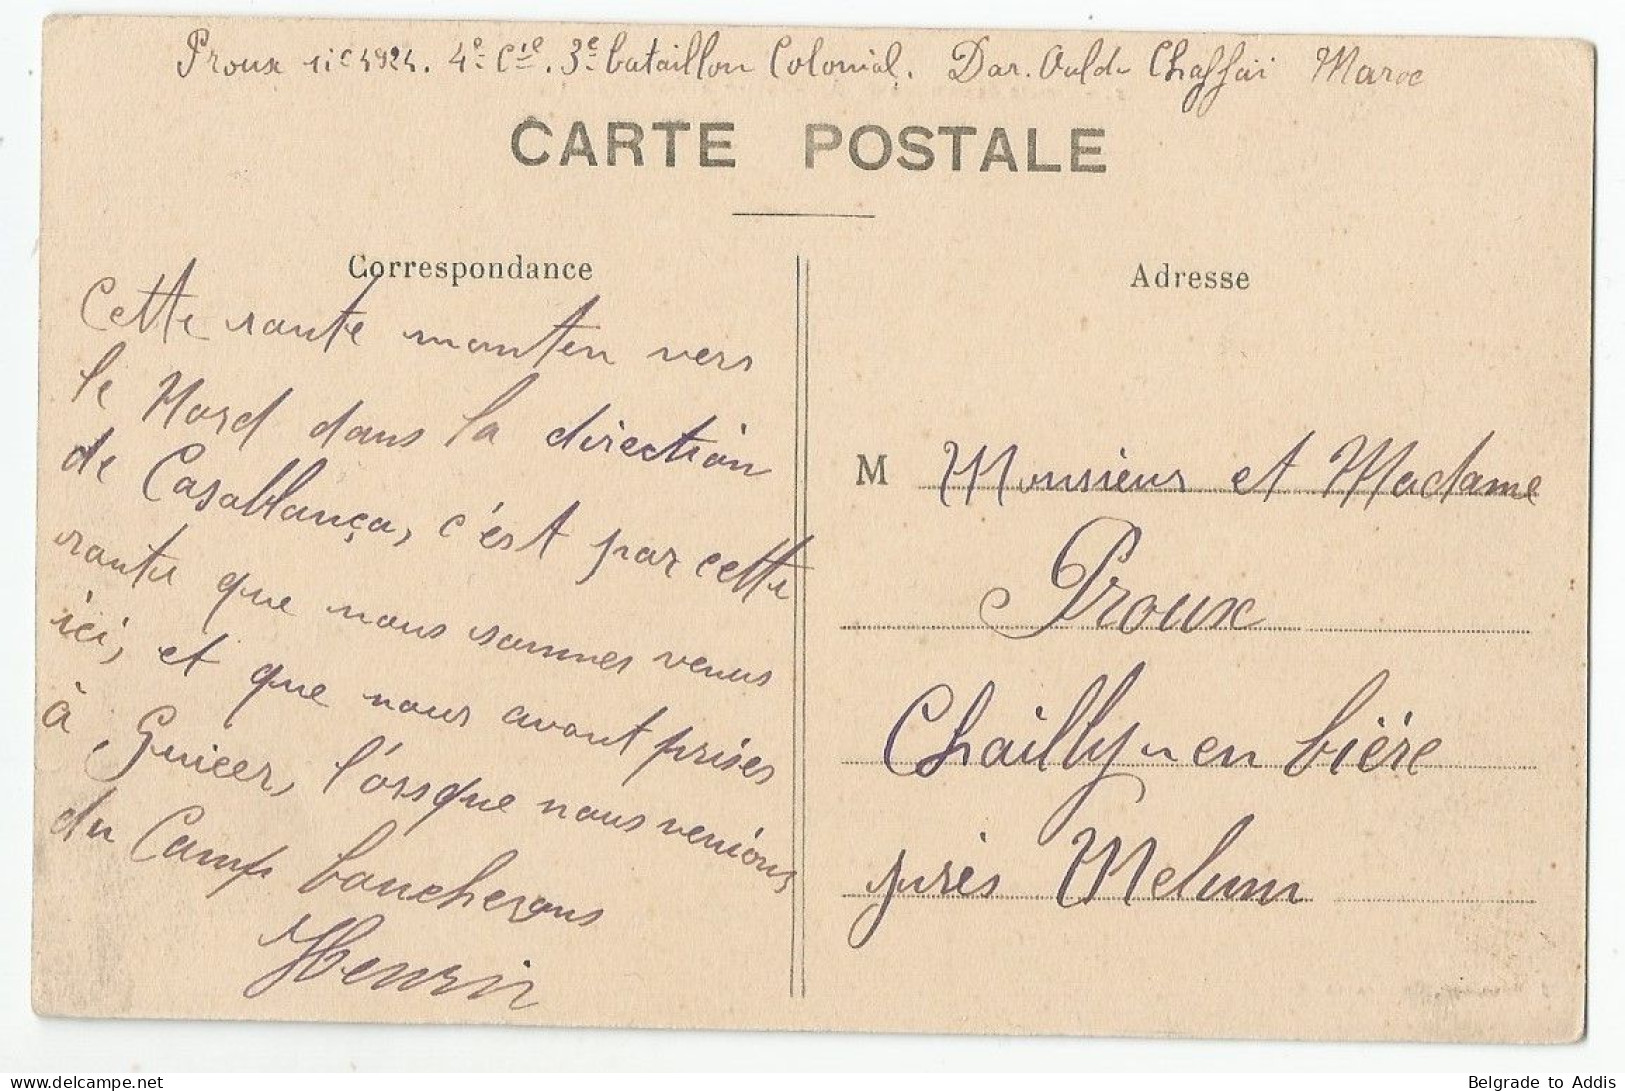 Proux nc 4924. 4e Cie. 3e bataillon Colonial. Dar. Ould. Chaffai Maroc
CARTE POSTALE
Correspondance
Adresse
Cette route monten vers
le Nord dans la direction
de Casablança, c'est par cette
route que nous sommes venus
ici, et que nous avont prises
à, Guicer, l'orsque nous venions
du Camp boucherons
Henri
M Monsieur et Madame
Proux
Chailly-en bière
près Melun
Belgrade to Addis